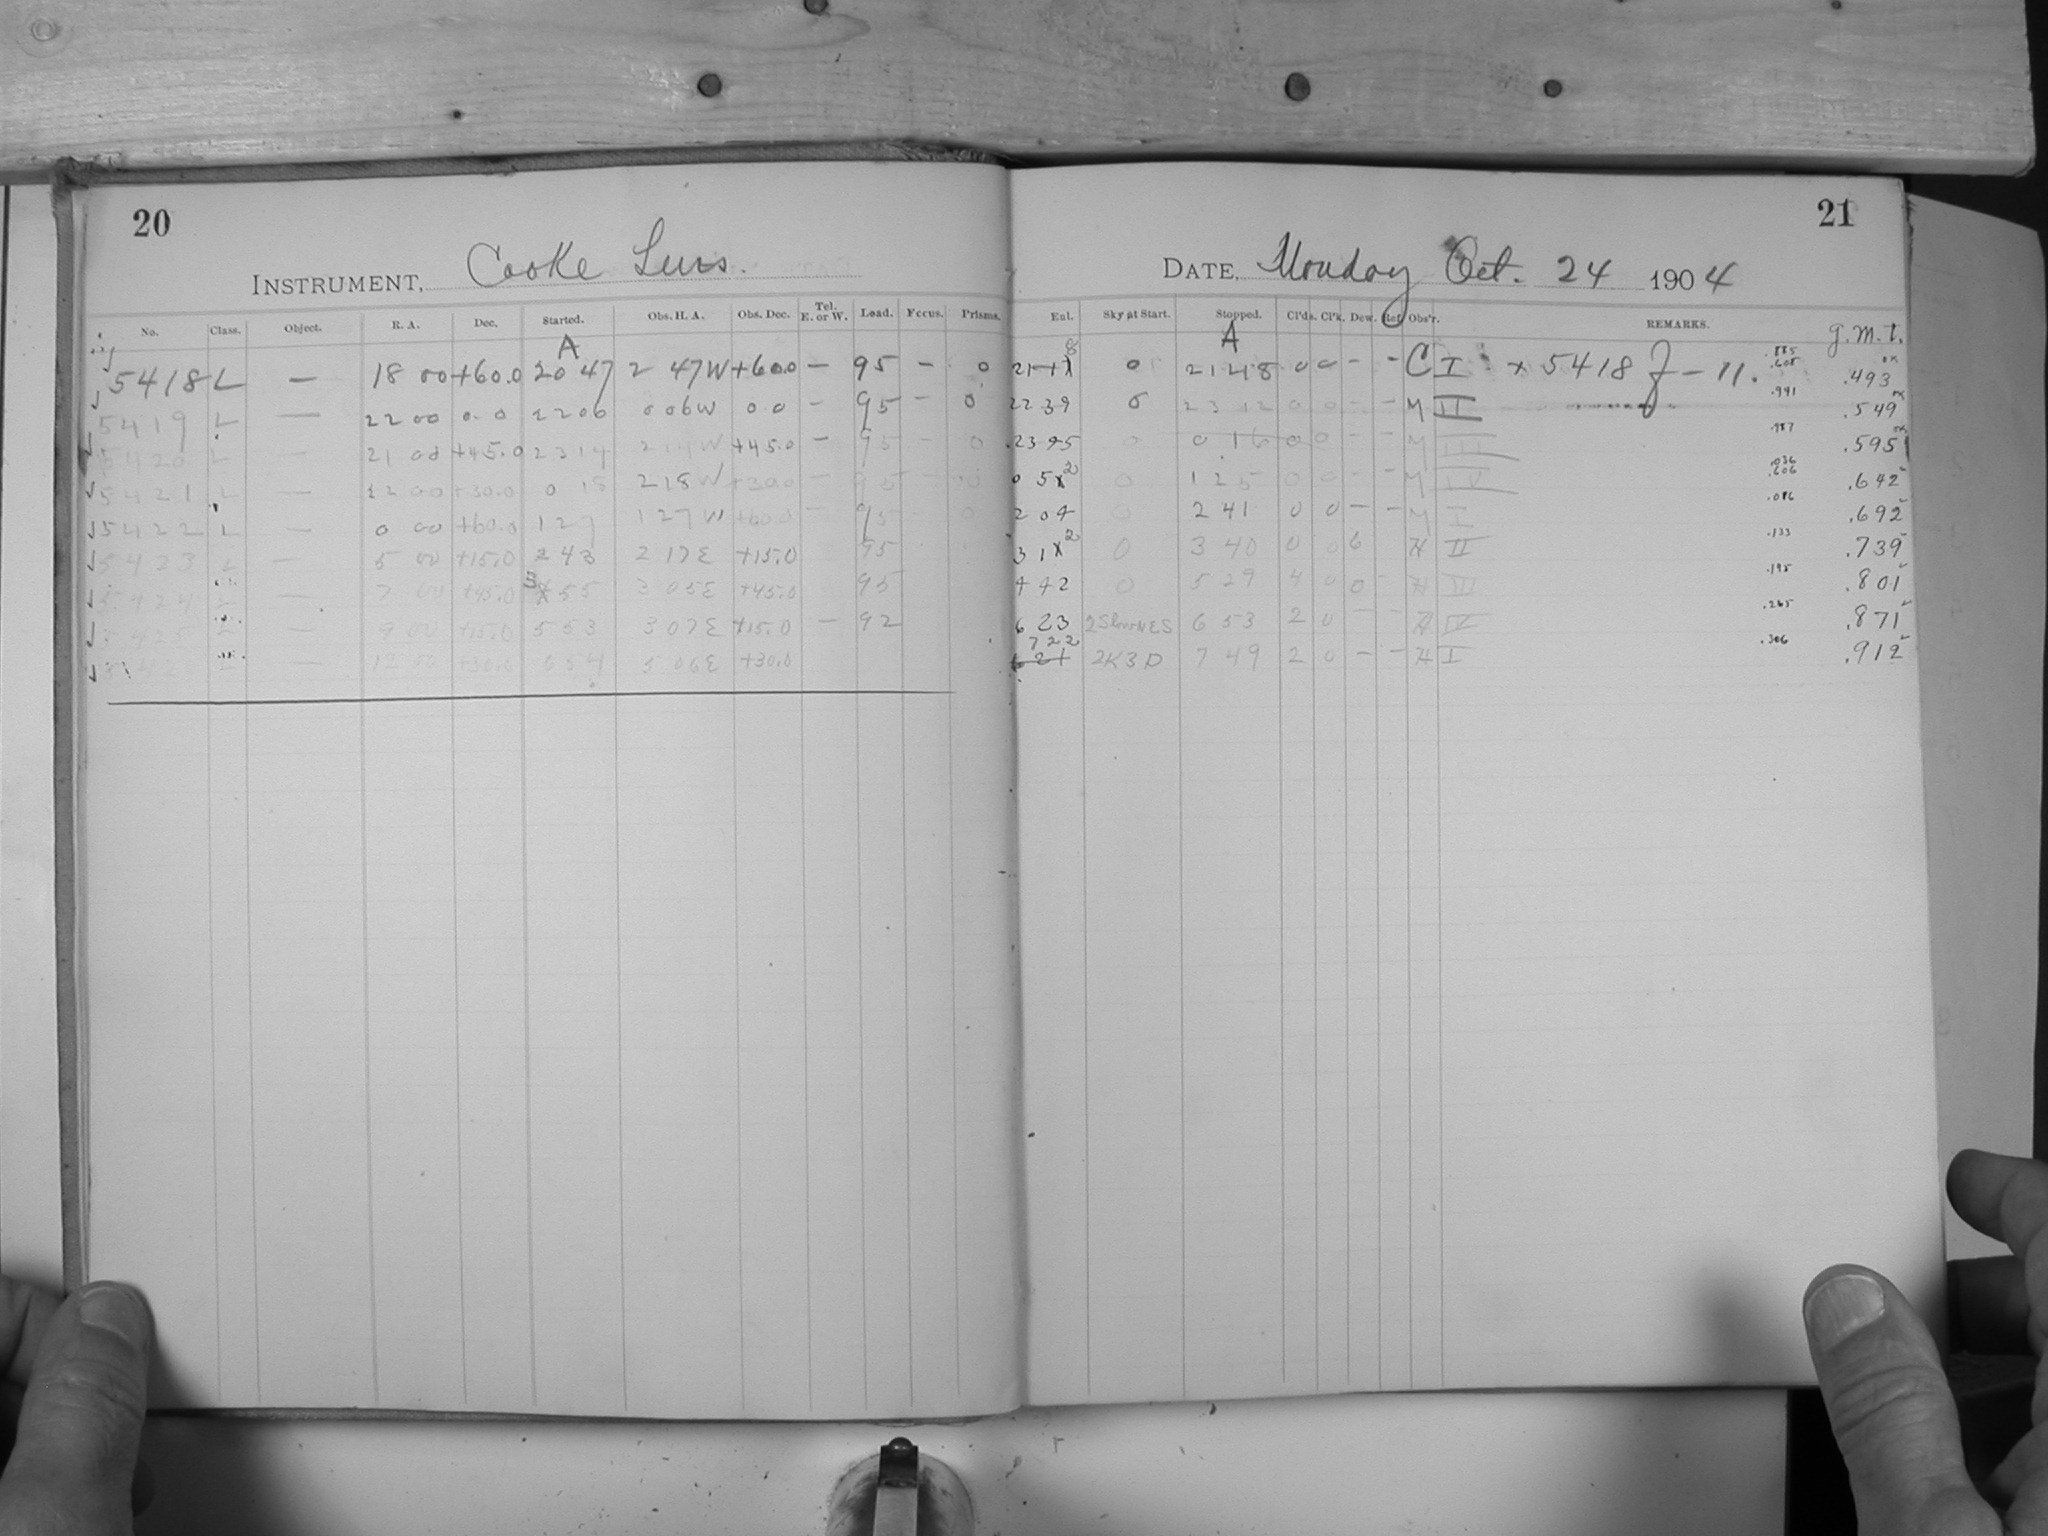 20
INSTRUMENT, Cooke Lens.
No. Class. Object. R. A. Dec. Started. Obs. H. A. Obs. Dec. Tel. E. or W. Load. Focus. Prisms.
A
5418 L — 18 00 +60.0 20 47 2 47W +60.0 — 95 — 0
5419 L — 22 00 0.0 22 06 0 06W 0.0 — 95 — 0
5420 L — 21 00 +45.0 23 14 2 14W +45.0 — 95 — 0
5421 L — 22 00 +30.0 0 18 2 18W +30.0 — 95 — 0
5422 L — 0 00 +60.0 1 27 1 27W +60.0 — 95 0
5423 L — 5 00 +15.0 2 43 2 17E +15.0 95
5424 L — 7 00 +45.0 3 55 3 05E +45.0 95
5425 L — 9 00 +15.0 5 53 3 07E +15.0 — 92
L — 12 00 +30.0 5 06E +30.0
21
DATE, Monday Oct. 24 1904
Enl. Sky at Start. Stopped. Cl'ds. Cl'k. Dew. Ref. Obs'r. REMARKS. G.M.T.
A
0 21 48 0 0 – – C I × 5418 J – 11. .493
22 39 0 23 12 0 0 – – M II .941 .549
0 0 16 0 0 – – M III .987 .595
0 52 0 1 25 0 0 – – M IV .036 .642
2 04 0 2 41 0 0 – – M I .086 .692
3 12 0 3 40 0 0 6 H II .133 .739
4 42 0 5 29 4 0 0 – H III .195 .801
6 23 6 53 2 0 – – H IV .265 .871
7 22 2K3D 7 49 2 0 – – H I .306 .912